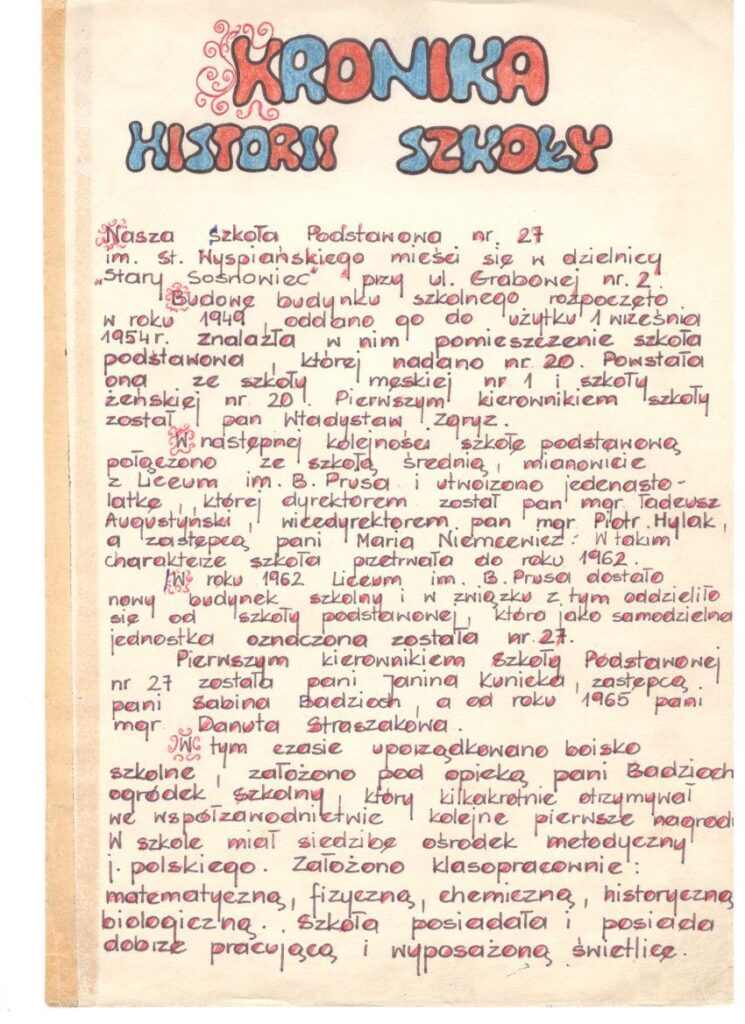 KRONIKA
HISTORII SZKOŁY
Nasza Szkoła Podstawowa nr. 27
im. St. Wyspiańskiego mieści się w dzielnicy
„Stary Sosnowiec" przy ul. Grabowej nr. 2.
Budowę budynku szkolnego rozpoczęto
w roku 1949, oddano go do użytku 1 września
1954 r. Znalazła w nim pomieszczenie szkoła
podstawowa, której nadano nr. 20. Powstała
ona ze szkoły męskiej nr 1 i szkoły
żeńskiej nr 20. Pierwszym kierownikiem szkoły
został pan Władysław Zgryz.
W następnej kolejności szkołę podstawową
połączono ze szkołą średnią, mianowicie
z Liceum im. B. Prusa i utworzono jedenasto-
latkę, której dyrektorem został pan mgr Tadeusz
Augustyński, wicedyrektorem pan mgr Piotr Hylak,
a zastępcą pani Maria Niemcewicz. W takim
charakterze szkoła przetrwała do roku 1962.
W roku 1962 Liceum im. B. Prusa dostało
nowy budynek szkolny i w związku z tym oddzieliło
się od szkoły podstawowej, która jako samodzielna
jednostka oznaczona została nr. 27.
Pierwszym kierownikiem Szkoły Podstawowej
nr 27 została pani Janina Kunicka, zastępcą
pani Sabina Badzioch, a od roku 1965 pani
mgr Danuta Straszakowa.
W tym czasie uporządkowano boisko
szkolne, założono pod opieką pani Badzioch
ogródek szkolny, który kilkakrotnie otrzymywał
we współzawodnictwie kolejne pierwsze nagrod
W szkole miał siedzibę ośrodek metodyczny
j. polskiego. Założono klasopracownie:
matematyczną, fizyczną, chemiczną, historyczną
biologiczną. Szkoła posiadała i posiada
dobrze pracującą i wyposażoną świetlicę.